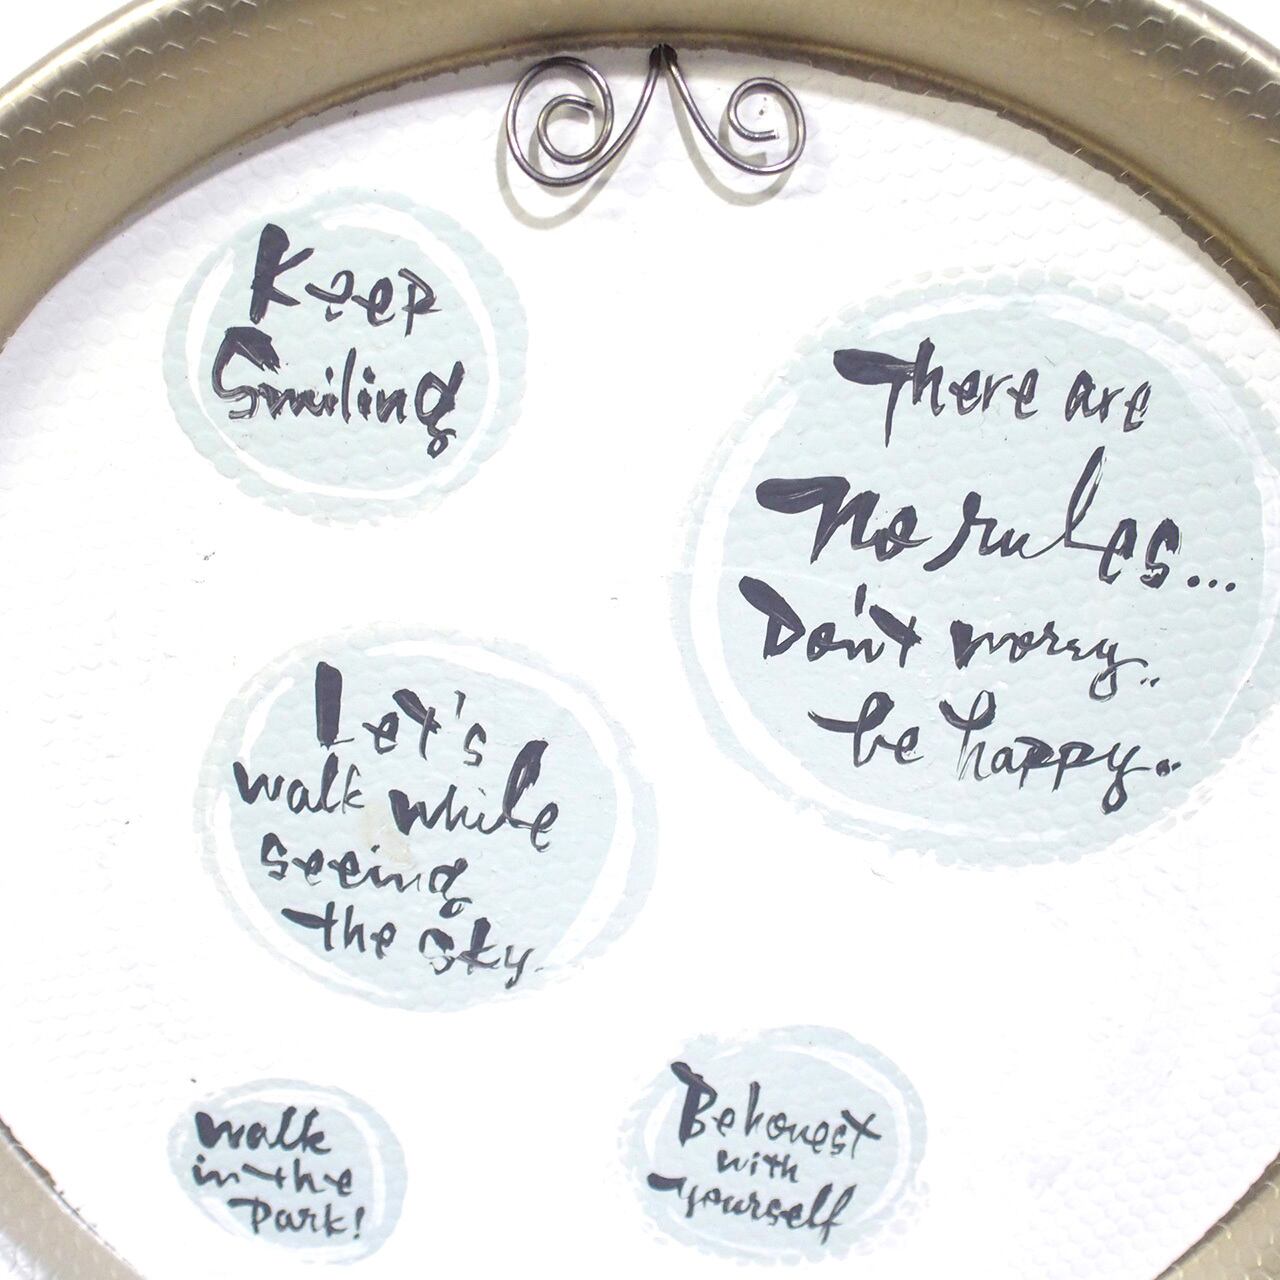 Keep
Smiling
There are
No rules...
Don't worry..
be happy..
Let's
walk while
seeing
the sky.
walk
in the
Park!
Be honest
with
yourself